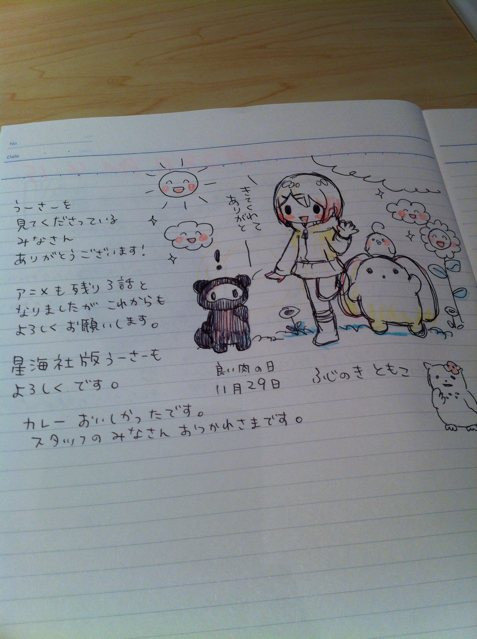 No.
Date
うーさーを
見てくださっている
みなさん
ありがとうございます!
きてくれて
ありがと
!
アニメも残り3話と
なりましたが これからも
よろしくお願いします。
星海社版うーさーも
よろしくです。
良い肉の日
11月29日
ふじのき ともこ
カレー おいしかったです。
スタッフの みなさん おつかれさまです。